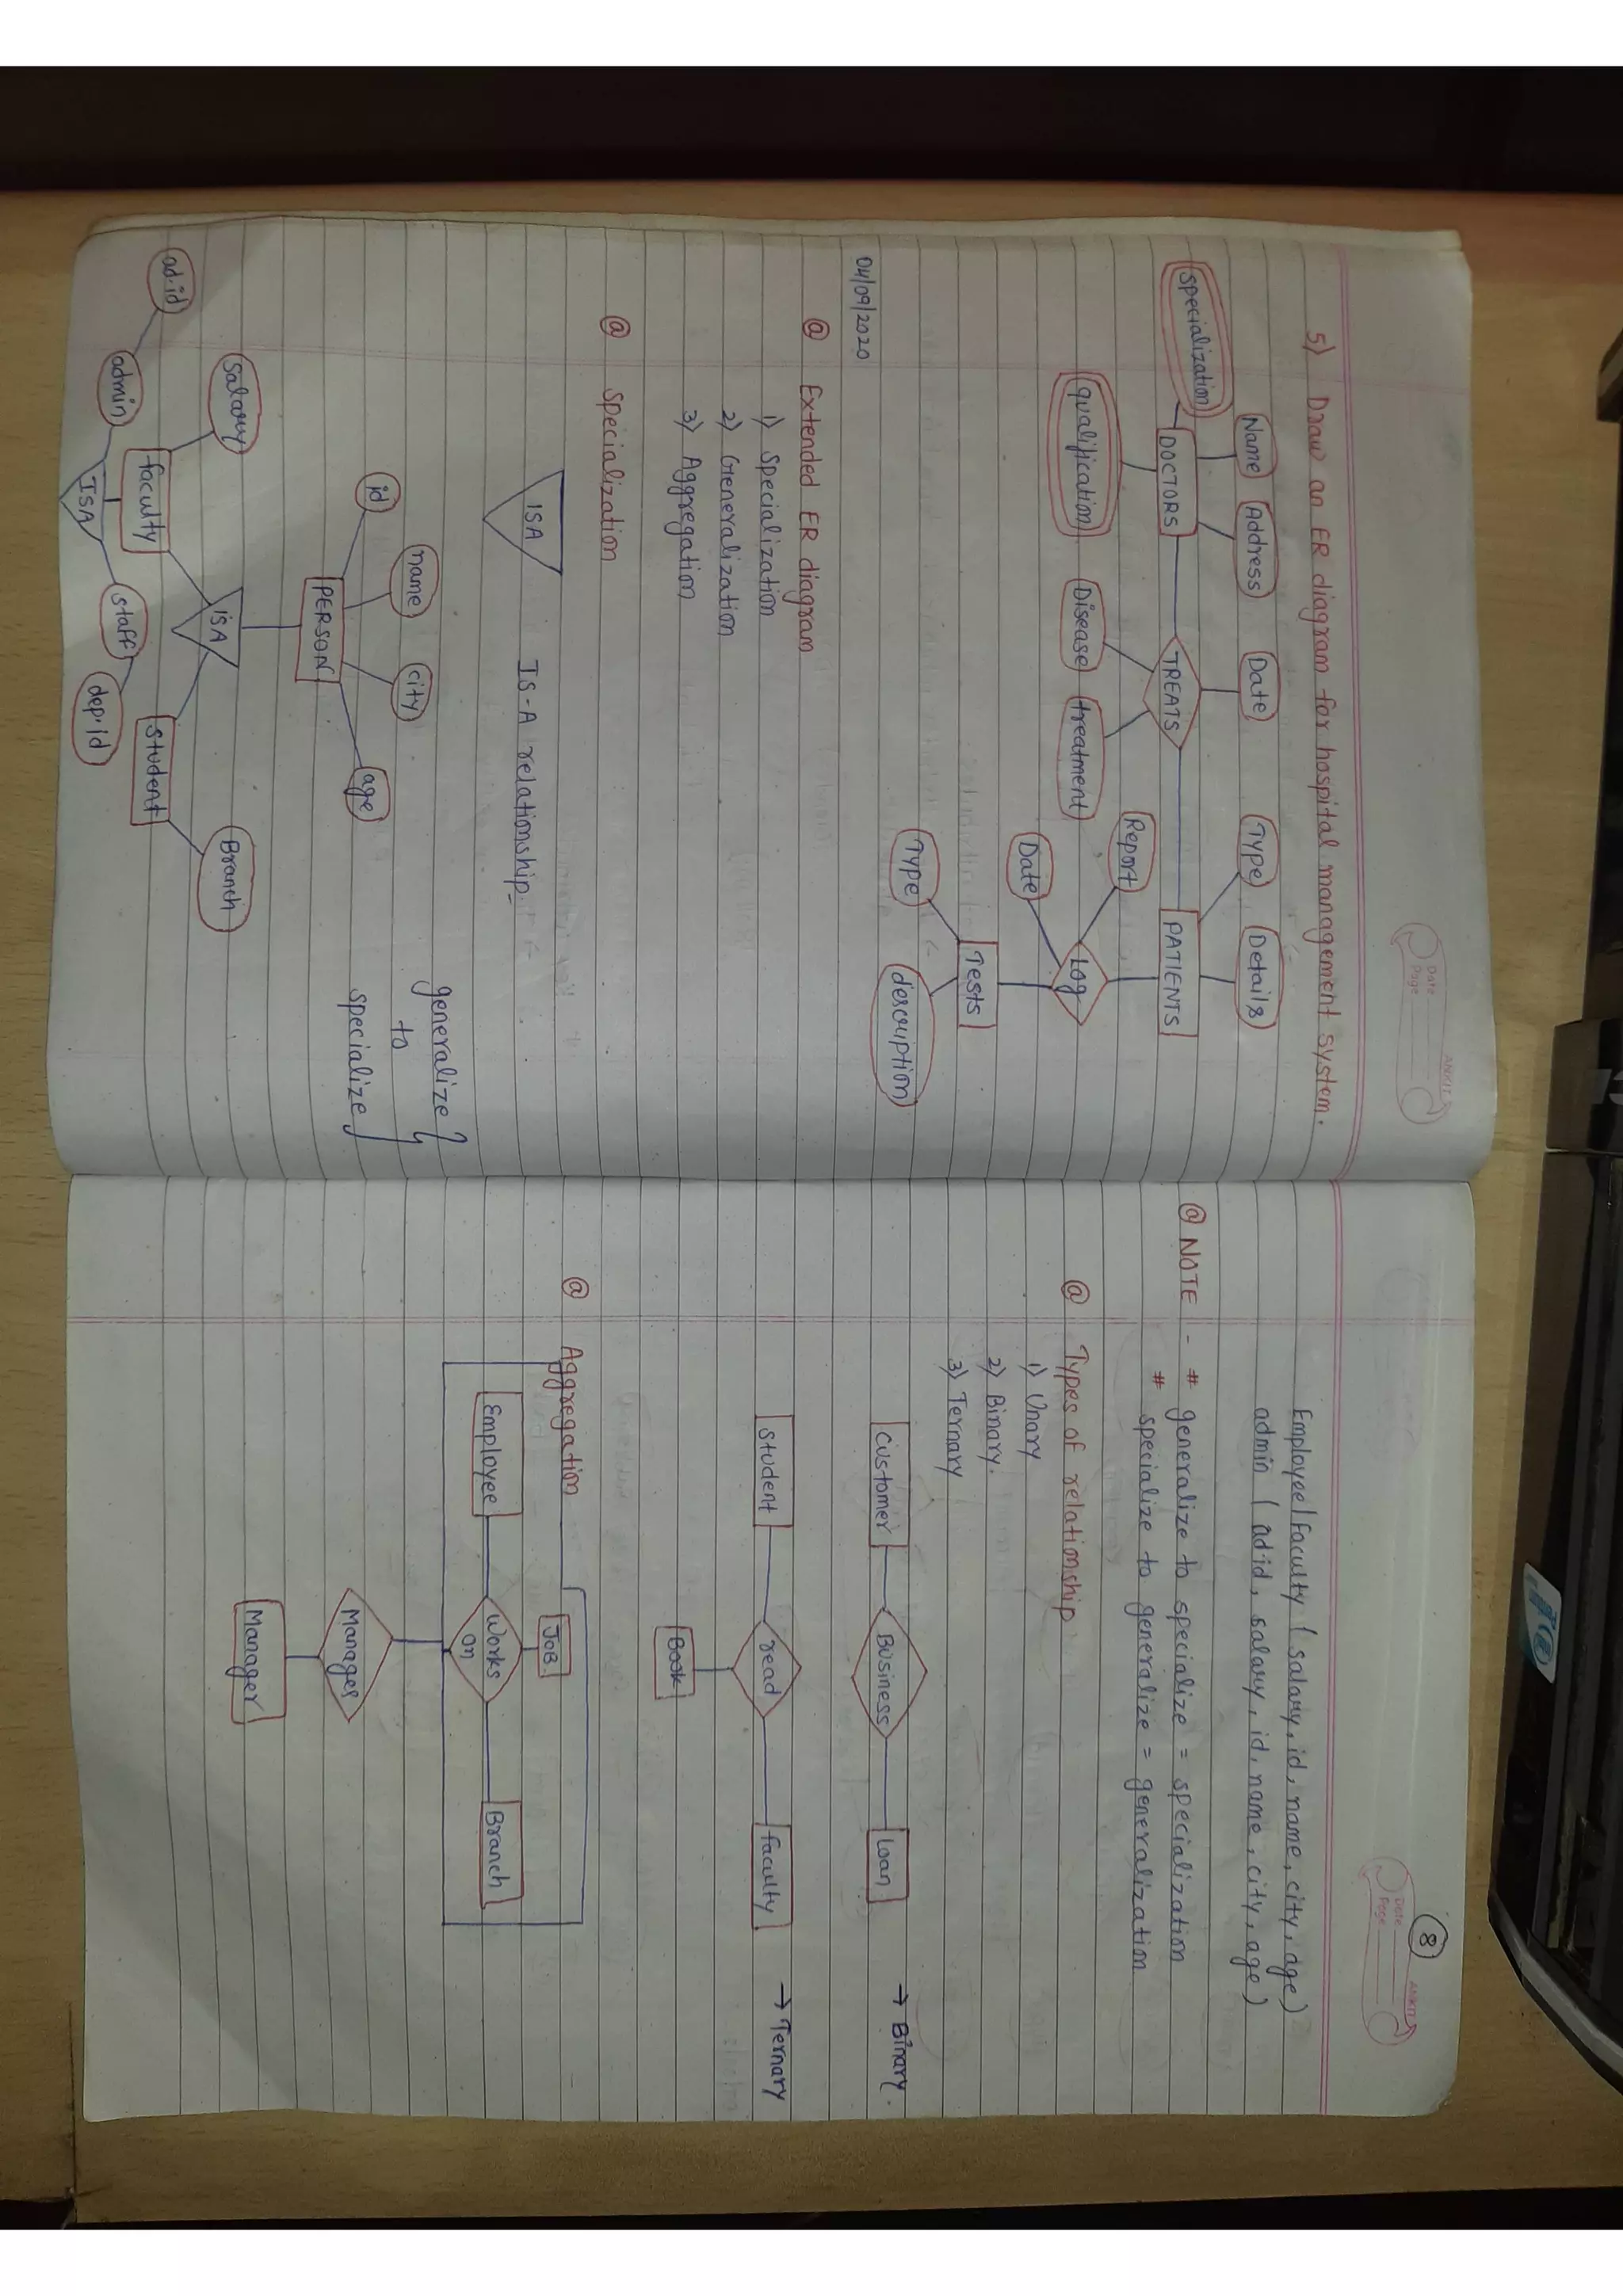 Date
Page
ANKIT
5) Draw an ER diagram for hospital management system.
Name Address Date Type Details
specialization
DOCTORS TREATS PATIENTS
qualification Disease treatment Report
Log
Date
Tests
Type description
04/09/2020
@ Extended ER diagram
1) specialization
2) Generalization
3) Aggregation
@ specialization
ISA IS-A relationship-
name city generalize }
id age to
specialize }
PERSON
salary ISA Branch
faculty student
ad.id admin ISA staff dep.id
8
Date
Page
ANKIT
Employee/Faculty (salary, id, name, city, age)
admin (ad id, salary, id, name, city, age)
@ NOTE - # generalize to specialize = specialization
# specialize to generalize = generalization
@ Types of relationship
1) Unary
2) Binary.
3) Ternary
customer Business loan → Binary.
student read faculty → Ternary
Book
@ Aggregation
JOB
Employee Works on Branch
Manages
Manager